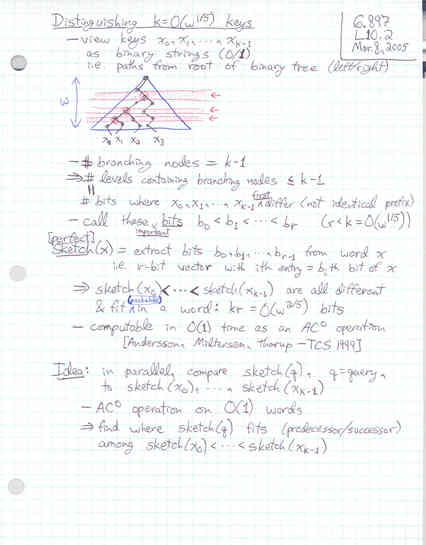 Distinguishing k=O(w^1/5) keys
6.897
L10.2
Mar.8, 2005
- view keys x0, x1, ..., xk-1
as binary strings (0/1)
i.e. paths from root of binary tree (left/right)
w
x0 x1 x2 x3
- # branching nodes = k-1
⇒ # levels containing branching nodes ≤ k-1
||
# bits where x0, x1, ..., xk-1 first differ (not identical prefix)
- call these important bits b0 < b1 < ... < br (r<k=O(w^1/5))
[perfect]
Sketch(x) = extract bits b0, b1, ..., br-1 from word x
i.e. r-bit vector with ith entry = bith bit of x
⇒ sketch(x0) < ... < sketch(xk-1) are all different
& fit in a word: kr = O(w^2/5) bits
- computable in O(1) time as an AC⁰ operation
[Andersson, Miltersen, Thorup - TCS 1999]
Idea: in parallel, compare sketch(q), q=query,
to sketch(x0), ..., sketch(xk-1)
- AC⁰ operation on O(1) words
⇒ find where sketch(q) fits (predecessor/successor)
among sketch(x0) < ... < sketch(xk-1)